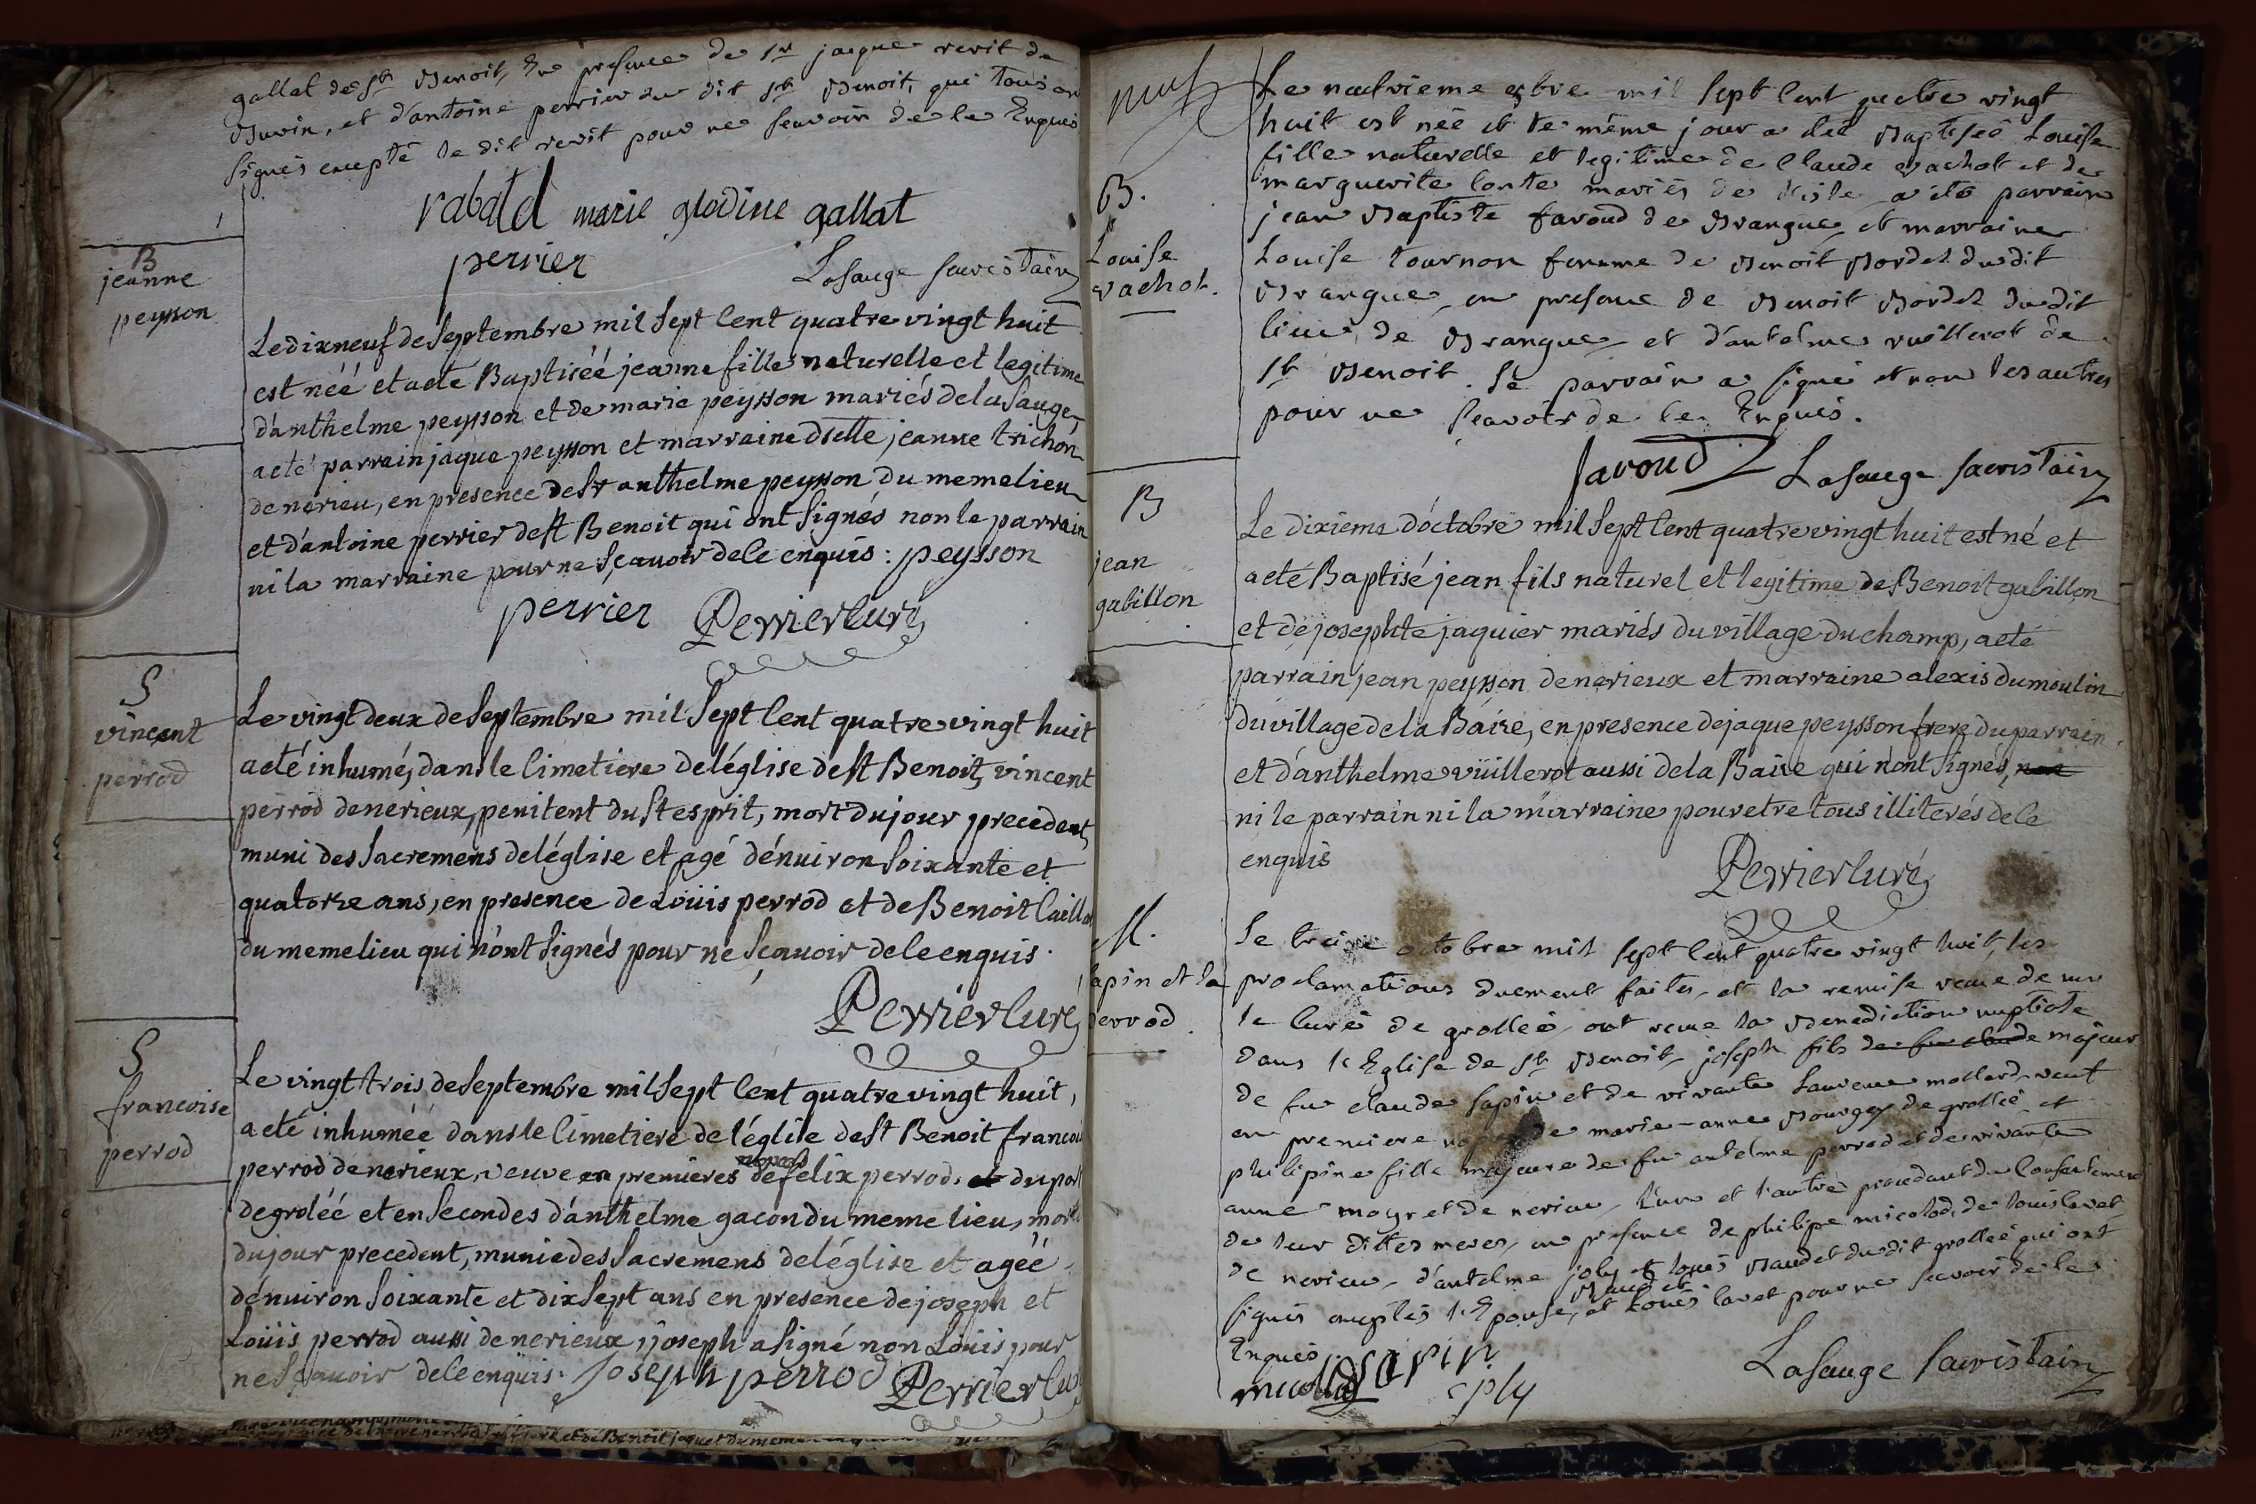 gallat de st Benoit, En presence de sr jacque revit de
Buvin, et d'antoine perrier du dit st Benoit, qui tous on
signés excepté le dit revit pour ne scavoir de le Enquis
rabatd marie glodine gallat
perrier
Lasauge sacristain
B
jeanne
peysson
Le dixneuf de septembre mil sept cent quatre vingt huit
est néé et a eté Baptiséé jeanne fille naturelle et legitime
d'anthelme peysson et de marie peysson mariés de la sauge
a eté parrain jaque peysson et marraine dselle jeanne trichon
de nerieu, en presence de sr anthelme peysson du meme lieu
et d'antoine perrier de st Benoit qui ont signés non le parrain
ni la marraine pour ne sçavoir de le enquis : peysson
perrier Perrier curé
S
vincent
perrod
Le vingt deux de septembre mil sept cent quatre vingt huit
a eté inhumé, dans le cimetiere de l'église de st Benoit, vincent
perrod de nerieux, penitent du st esprit, mort du jour precedent,
muni des sacremens de l'église et agé d'enuiron soixante et
quatorze ans, en presence de Loüis perrod et de Benoit Caillo
du meme lieu qui n'ont signés pour ne sçavoir de le enquis.
Perrier curé
S
francoise
perrod
Le vingt trois de septembre mil sept cent quatre vingt huit,
a eté inhumée dans le cimetiere de l'église de st Benoit francoi
perrod de nerieux, veuve en premières nopces de felix perrod, et du port
de groléé et en secondes d'anthelme gacon du meme lieu, morte
du jour precedent, munie des sacremens de l'église et agéé
d'enuiron soixante et dix sept ans en presence de joseph et
Loüis perrod aussi de nerieux, joseph a signé non Loüis pour
ne sçavoir de le enquis. Joseph perrod Perrier cu
B.
Louise
vachot.
Le neuvieme 8bre mil sept cent quatre vingt
huit est née et le même jour a été Baptiseé Louise
fille naturelle et legitime de Claude vachot et de
marguerite Conte mariés de l'isle a été parrain
jean Baptiste favoud de Brangue et marraine
Louise tournon femme de Benoit Bordel dudit
Brangue, en presence de Benoit Bordel dudit
lieu de Brangue, et d'antelme vuillerot de
st Benoit. le parrain a signé et non les autres
pour ne scavoir de le Enquis.
favoud Lasauge sacristain
B
jean
gabillon
Le dixieme d'octobre mil sept cent quatre vingt huit est né et
a eté Baptisé jean fils naturel et legitime de Benoit gabillon
et de josephte jaquier mariés du village du champ, a eté
parrain jean peysson de nerieux et marraine alexis dumoulin
du village de la Baise, en presence de jaque peysson frere du parrain
et d'anthelme vüillerot aussi de la Baise qui n'ont signés, non
ni le parrain ni la marraine pour etre tous illiterés de le
enquis
Perrier curé
M.
sapin et la
perrod
Le treise octobre mil sept cent quatre vingt huit, les
proclamations duement faites, et la remise reçue de mr
le curé de grolleé, ont reçue la Benediction nuptiale
dans l'Eglise de st Benoit, joseph fils de fu claude majeur
de fu claude sapin et de vivante Laurence mollard, veuf
en premiere nopce de marie-anne Bourgey de grolleé et
philipine fille majeure de fu antelme perrod et de vivante
anne moyret de nerieu, l'une et l'autre procedant du consentement
de leur dittes meres, en presence de philipe micolod, de louis lavet
de nerieu, d'antelme joly et louis Baudet du dit grolleé qui ont
signés exceptés l'Epouse, Baudet et Louis lavet pour ne scavoir de le
Enquis.
micollod sapin
joly
Lasauge sacristain